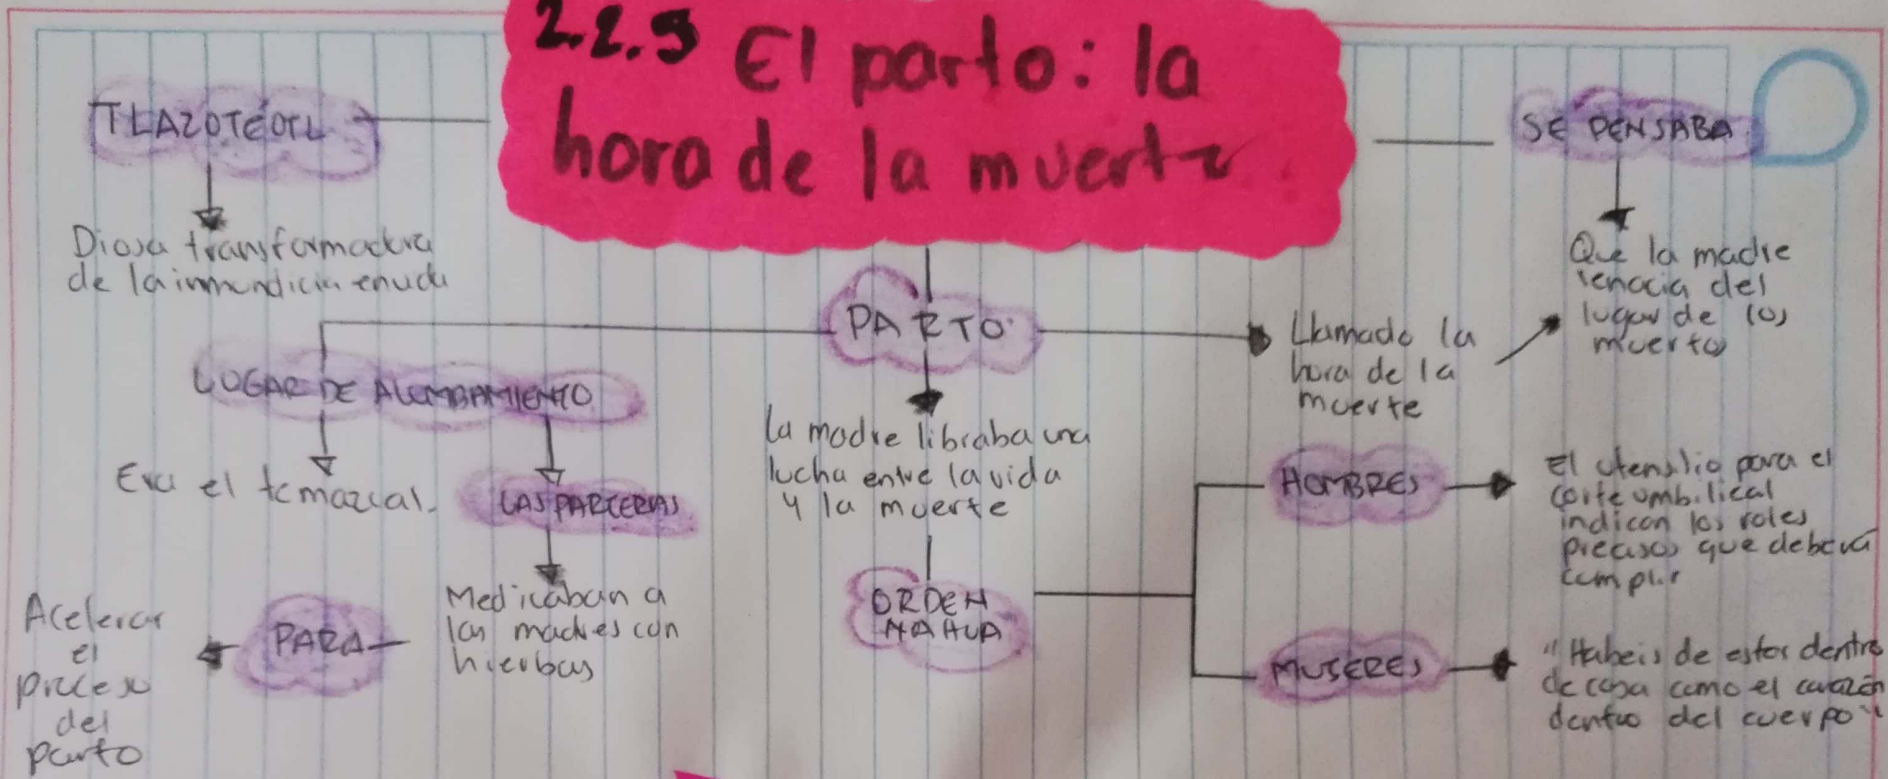 2.2.3 El parto: la
hora de la muerte
TLAZOTÉOTL
Diosa transformadora
de la inmundicia en
SE PENSABA
Que la madre
renacia del
lugar de los
muertos
PARTO
Llamado la
hora de la
muerte
LUGAR DE ALUMBAMIENTO
Era el temazcal.
LAS PARCERAS
Medicaban a
las madres con
hierbas
PARA
Acelerar
el
proceso
del
parto
La madre libraba una
lucha entre la vida
y la muerte
ORDEN
NAHUA
HOMBRES
El utensilio para el
corte umbilical
indican los roles
precisos que debera
cumplir
MUJERES
"Habeis de estar dentro
de casa como el corazón
dentro del cuerpo"